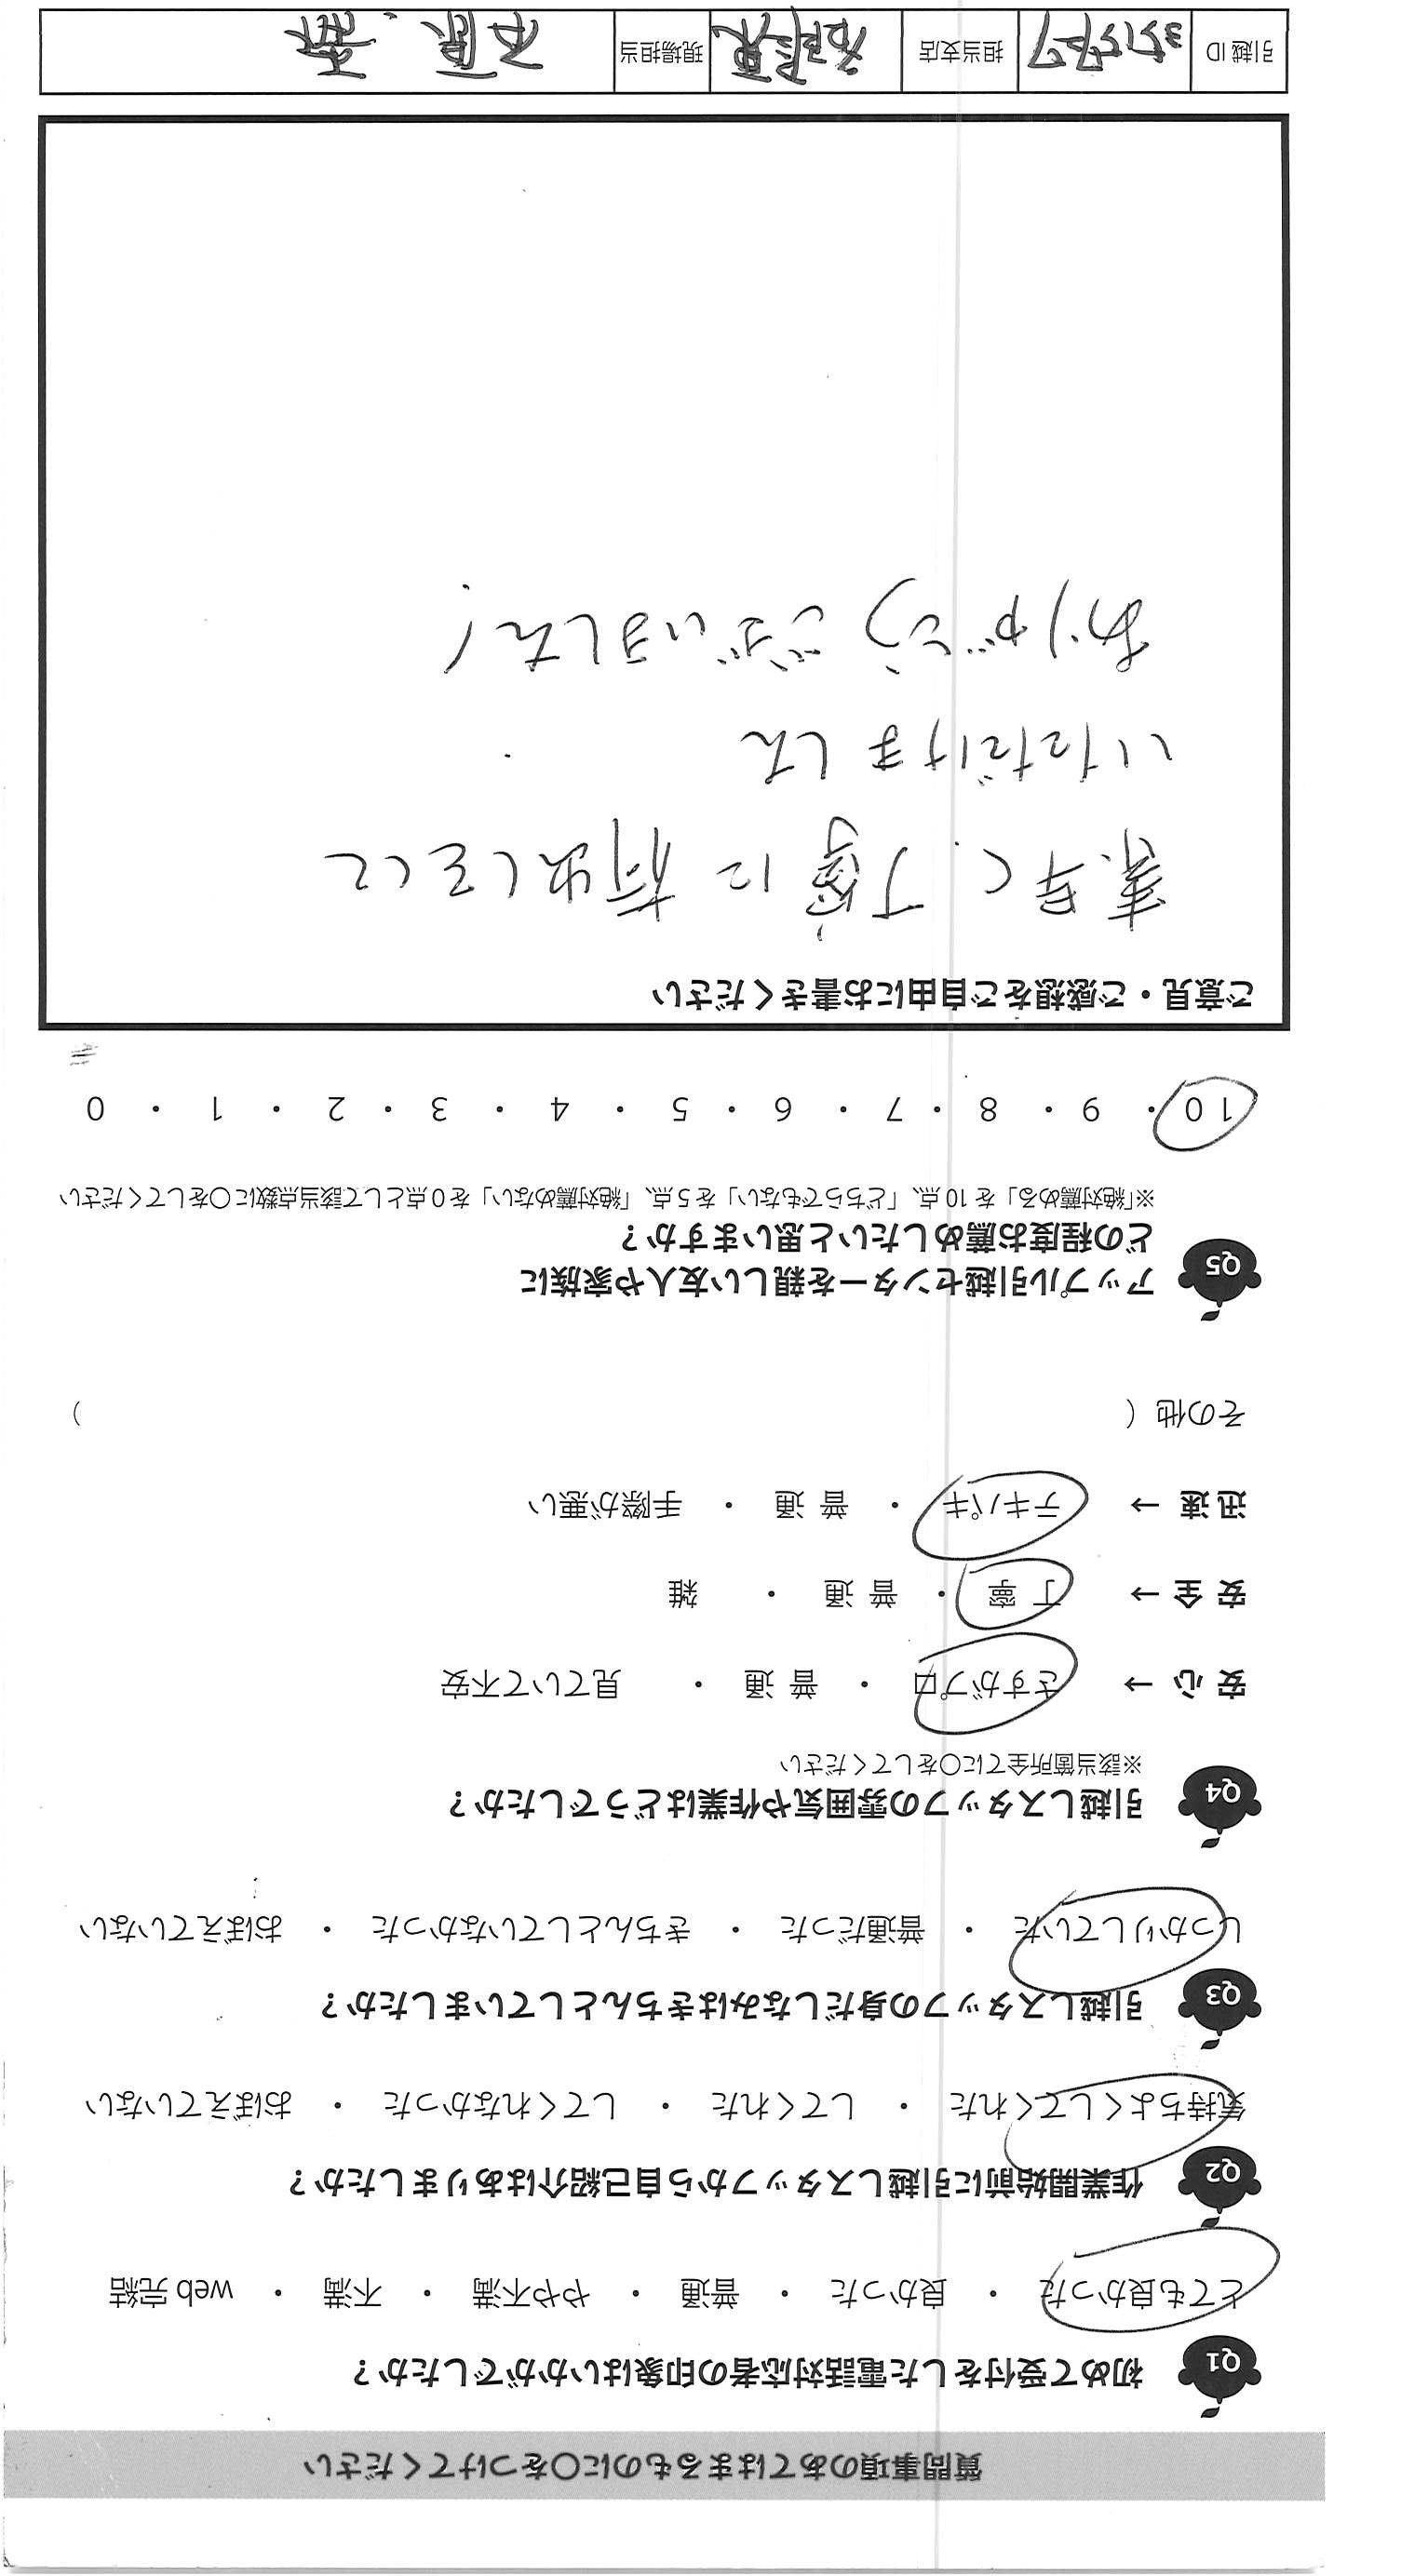 質問事項のあてはまるものに〇をつけてください
Q1 初めて受付をした電話対応者の印象はいかがでしたか？
とても良かった ・ 良かった ・ 普通 ・ やや不満 ・ 不満 ・ web 完結
Q2 作業開始前に引越しスタッフから自己紹介はありましたか？
気持ちよくしてくれた ・ してくれた ・ してくれなかった ・ おぼえていない
Q3 引越しスタッフの身だしなみはきちんとしていましたか？
しっかりしていた ・ 普通だった ・ きちんとしていなかった ・ おぼえていない
Q4 引越しスタッフの雰囲気や作業はどうでしたか？
※該当箇所全てに〇をしてください
安心 → さすがプロ ・ 普通 ・ 見ていて不安
安全 → 丁寧 ・ 普通 ・ 雑
迅速 → テキパキ ・ 普通 ・ 手際が悪い
その他（ ）
Q5 アップル引越センターを親しい友人や家族に
どの程度お薦めしたいと思いますか？
※「絶対薦める」を10点、「どちらでもない」を5点、「絶対薦めない」を0点として該当点数に〇をしてください
10 ・ 9 ・ 8 ・ 7 ・ 6 ・ 5 ・ 4 ・ 3 ・ 2 ・ 1 ・ 0
ご意見・ご感想をご自由にお書きください
素早く、丁寧に荷出しをして
いただけました
ありがとうございました！
引越ID 担当支店 現場担当